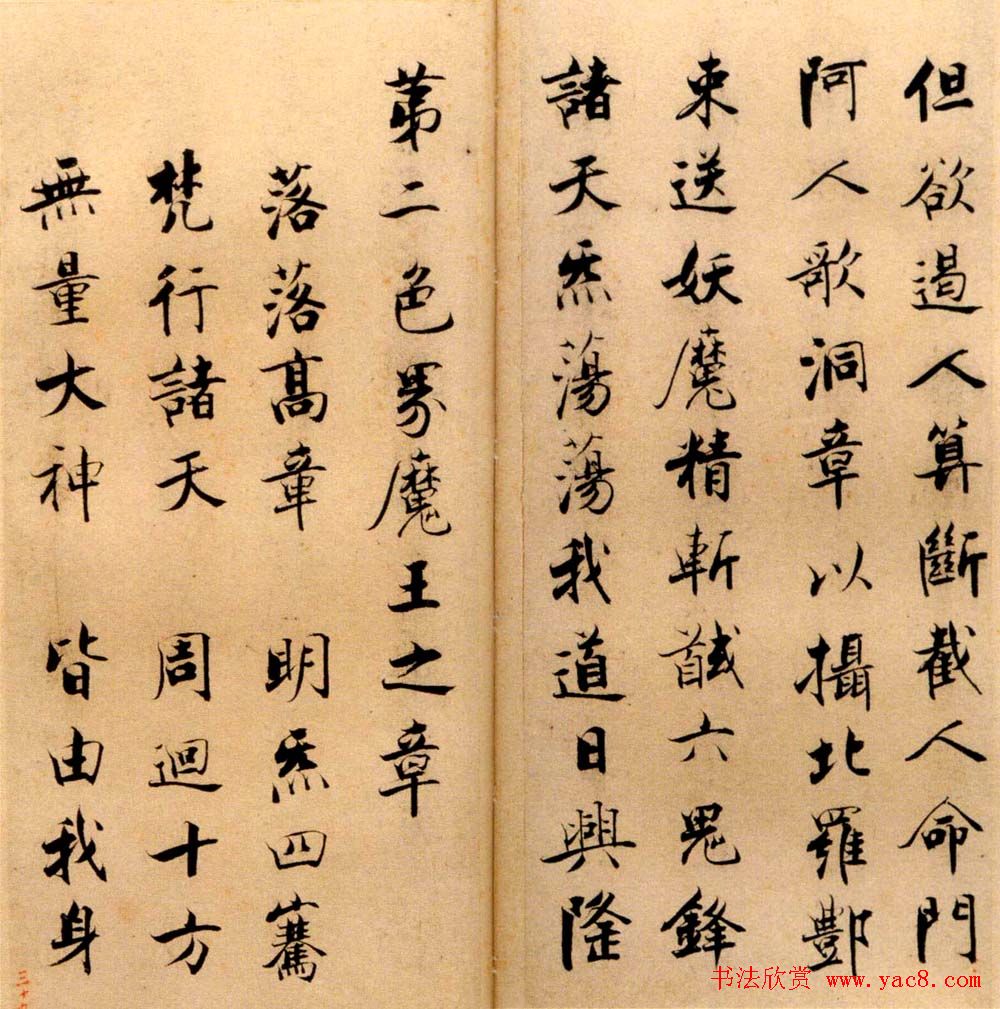 但欲遏人算斷截人命門
阿人歌洞章以攝北羅酆
束送妖魔精斬馘六鬼鋒
諸天炁蕩蕩我道日興隆
苐二色界魔王之章
落落髙章 明炁四騫
梵行諸天 周迴十方
無量大神 皆由我身
三十
书法欣赏 www.yac8.com